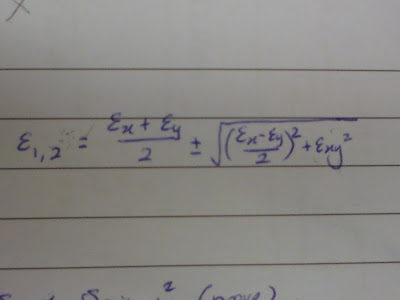 ε₁,₂ = (εx + εy)/2 ± √(((εx - εy)/2)² + εxy²)